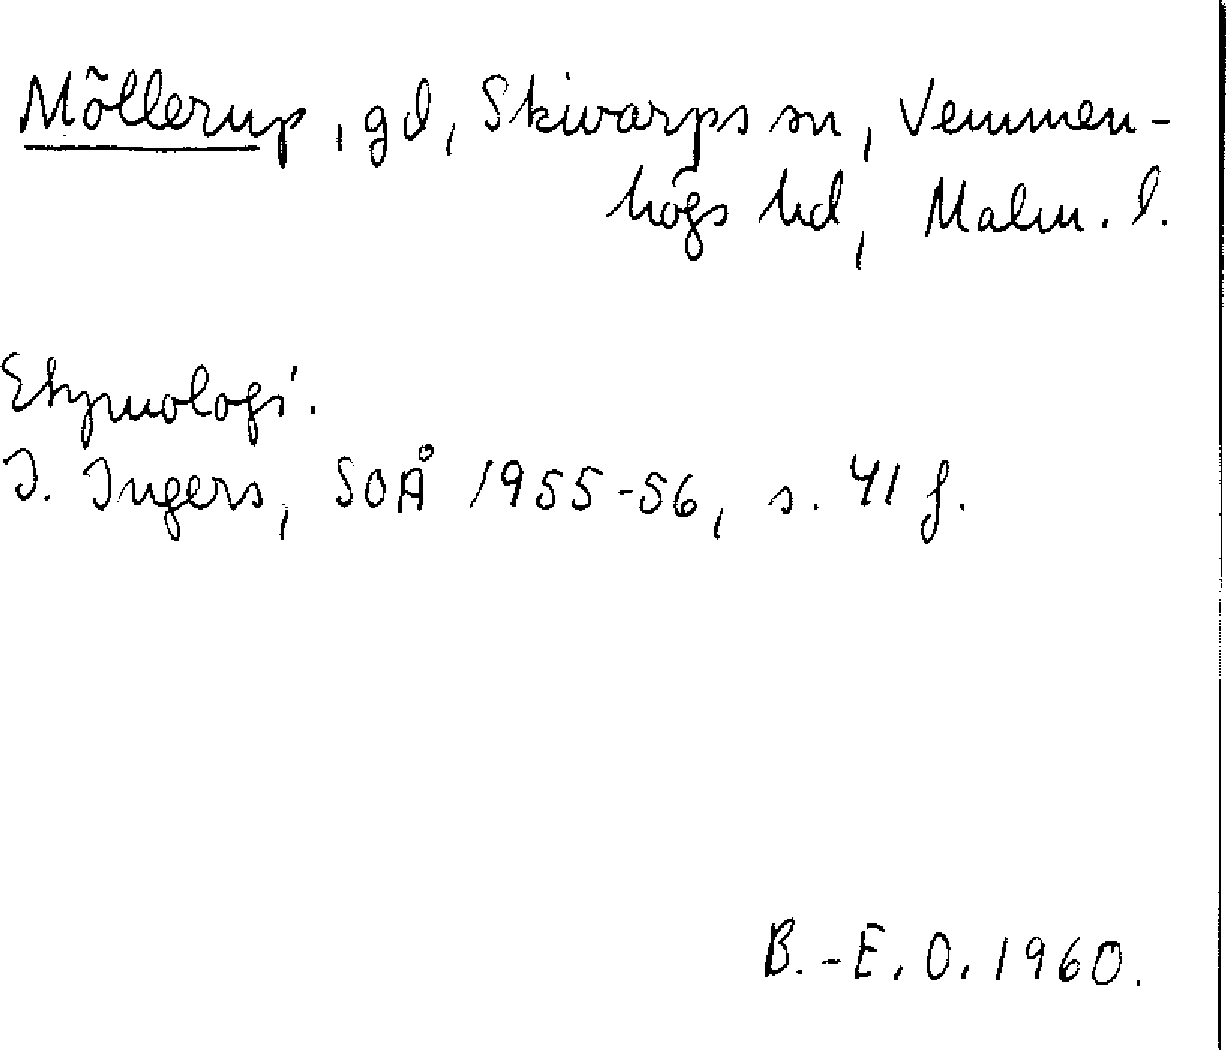 Möllerup, gd, Skivarps sn, Vemmen-
högs hd, Malm. l.
Etymologi.
I. Ingers, SOÅ 1955-56, s. 41 f.
B.-E. O. 1960.